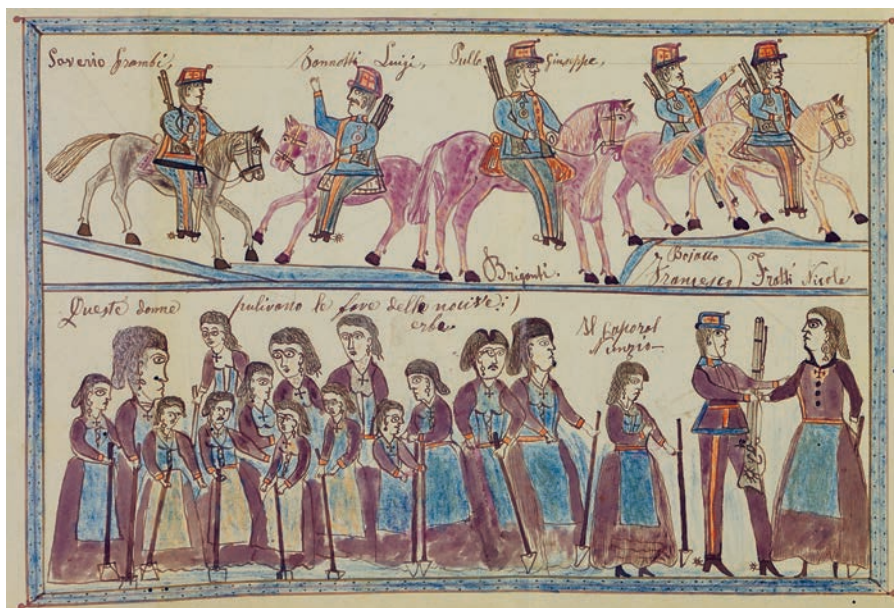 Saverio Grambi, Bonnotti Luigi, Pullo Giuseppe,
Briganti.
Bojatto
Francesco) Fratti Nicola
Queste donne pulivano le fave delle nocive:)
erbe
Il Caporal
Nunzio